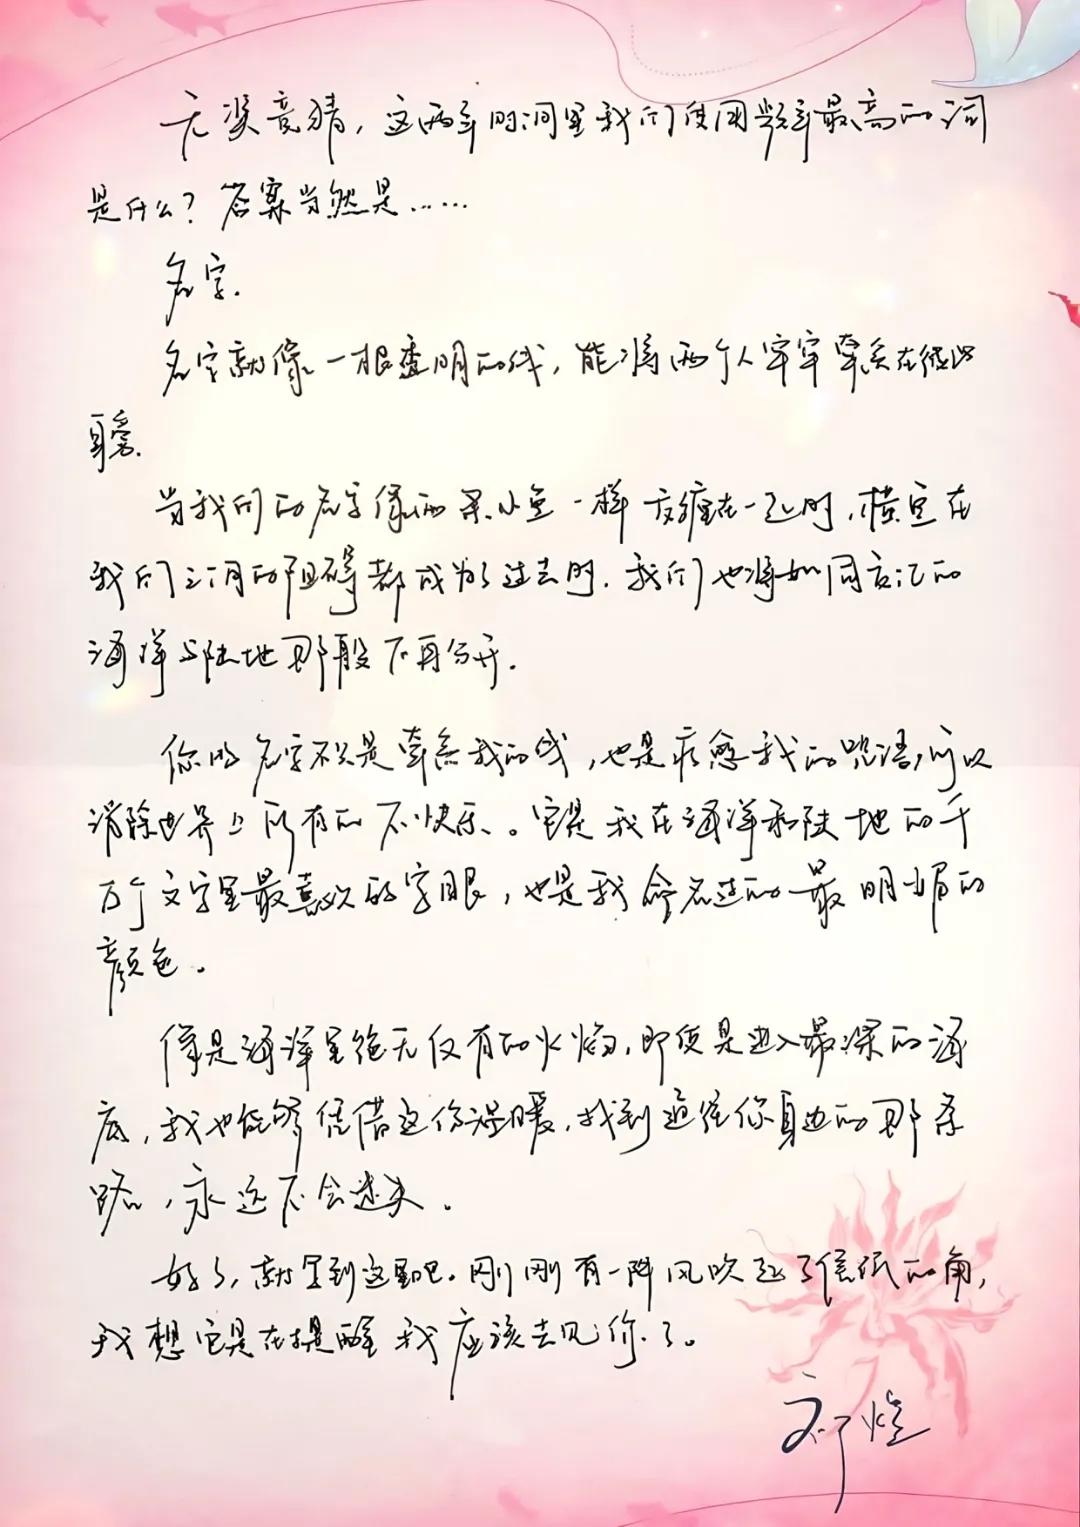 有奖竞猜，这两年时间里我们使用频率最高的词
是什么？答案当然是……
名字.
名字就像一根透明的线，能将两个人牢牢牵系在彼此
耳旁.
当我们的名字像两条小鱼一样交缠在一起时，横亘在
我们之间的阻碍都成为了过去时.我们也将如同交汇的
海洋与陆地那般不再分开.
你的名字不只是牵系我的线，也是疗愈我的咒语，可以
消除世界上所有的不快乐。它是我在海洋和陆地的千
万个文字里最喜欢的字眼，也是我命名过的最明媚的
颜色。
像是海洋里绝无仅有的火焰，即使是进入最深的海
底，我也能够凭借这份温暖，找到通往你身边的那条
路，永远不会迷失。
好了，就写到这里吧。刚刚有一阵风吹起了信纸的角，
我想它是在提醒我应该去见你了。
祁煜